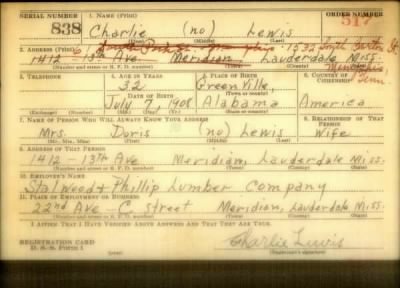 SERIAL NUMBER 1. NAME (Print) ORDER NUMBER
838 Charlie (no) Lewis
(First) (Middle) (Last)
2. ADDRESS (Print) 1532 South
1412 - 13th Ave. Meridian, Lauderdale Miss.
(Number and street or R. F. D. number) (Town) (County) (State)
Memphis, Tenn
3. TELEPHONE 4. AGE IN YEARS 5. PLACE OF BIRTH 6. COUNTRY OF CITIZENSHIP
32 Greenville
DATE OF BIRTH (Town or county)
July 7, 1908 Alabama America
(Exchange) (Number) (Mo.) (Day) (Yr.) (State or country)
7. NAME OF PERSON WHO WILL ALWAYS KNOW YOUR ADDRESS 8. RELATIONSHIP OF THAT PERSON
Mrs. Doris (no) Lewis Wife
(Mr., Mrs., Miss) (First) (Middle) (Last)
9. ADDRESS OF THAT PERSON
1412 - 13th Ave Meridian, Lauderdale Miss.
(Number and street or R. F. D. number) (Town) (County) (State)
10. EMPLOYER'S NAME
Stalwood & Phillip Lumber Company
11. PLACE OF EMPLOYMENT OR BUSINESS
22nd Ave - C street Meridian, Lauderdale Miss.
(Number and street or R. F. D. number) (Town) (County) (State)
I AFFIRM THAT I HAVE VERIFIED ABOVE ANSWERS AND THAT THEY ARE TRUE.
REGISTRATION CARD
D. S. S. Form 1
Charlie Lewis